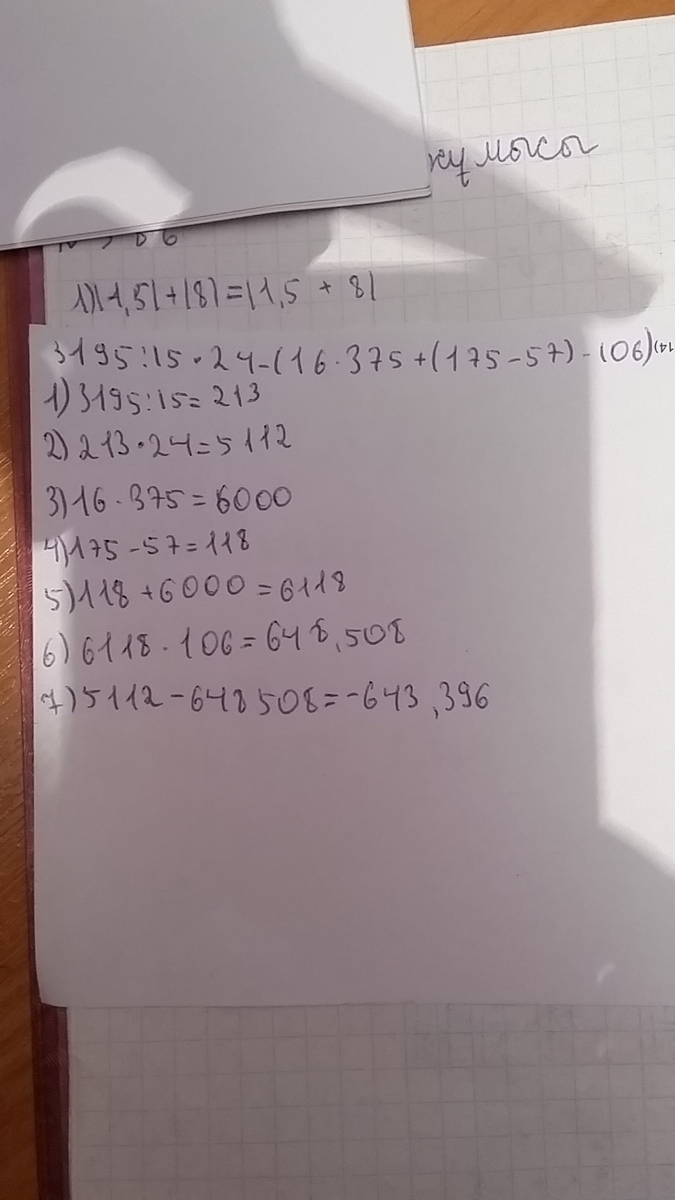 1) |1,5| + |8| = |1,5 + 8|
3195:15·24-(16·375+(175-57)-106)
1) 3195:15=213
2) 213·24=5112
3) 16·375=6000
4) 175-57=118
5) 118+6000=6118
6) 6118·106=648,508
7) 5112-648508=-643,396